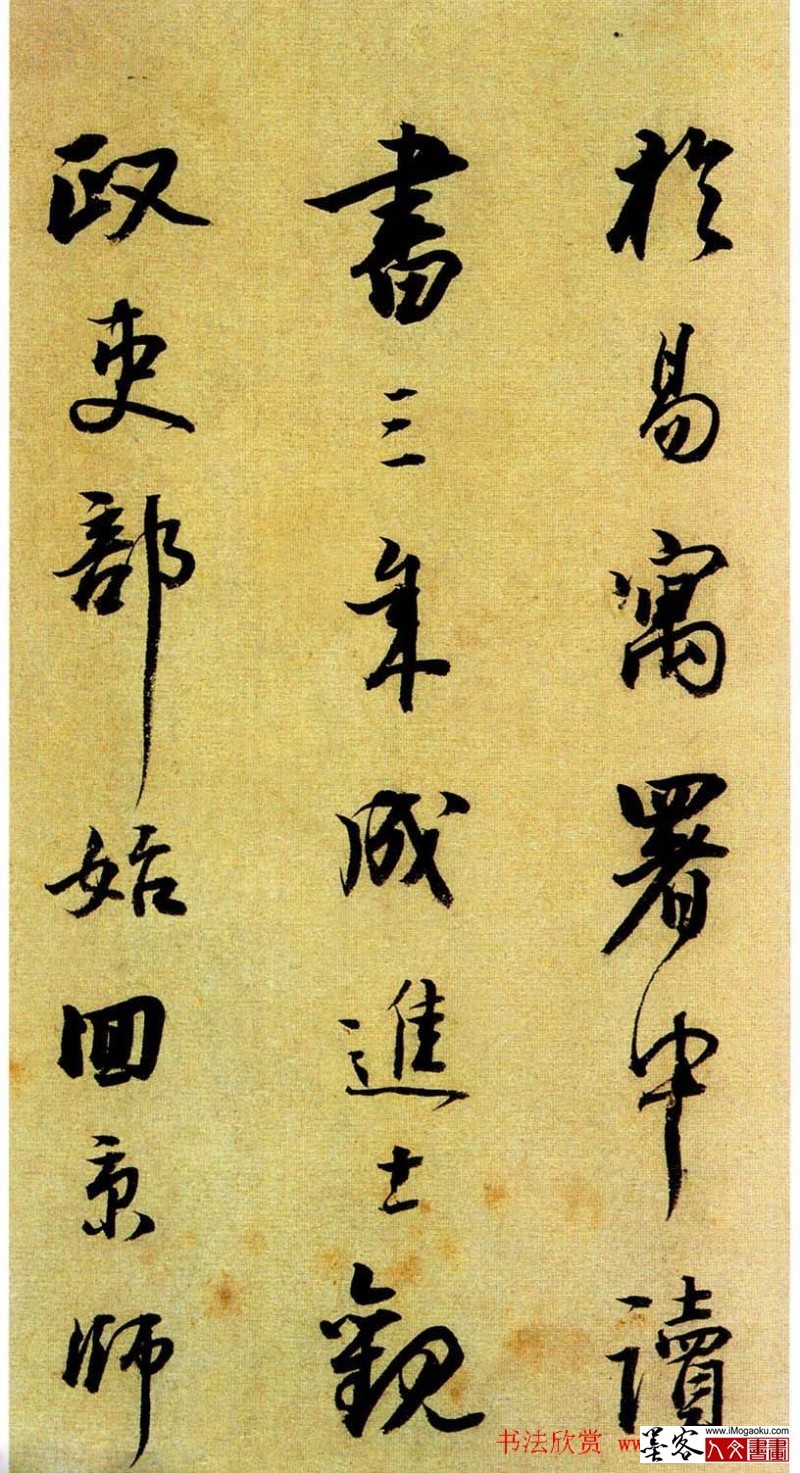 於易寓署中讀
書三年成進士觀
政吏部始回京師
书法欣赏 www
www.iMogaoku.com
墨客 人文書畫